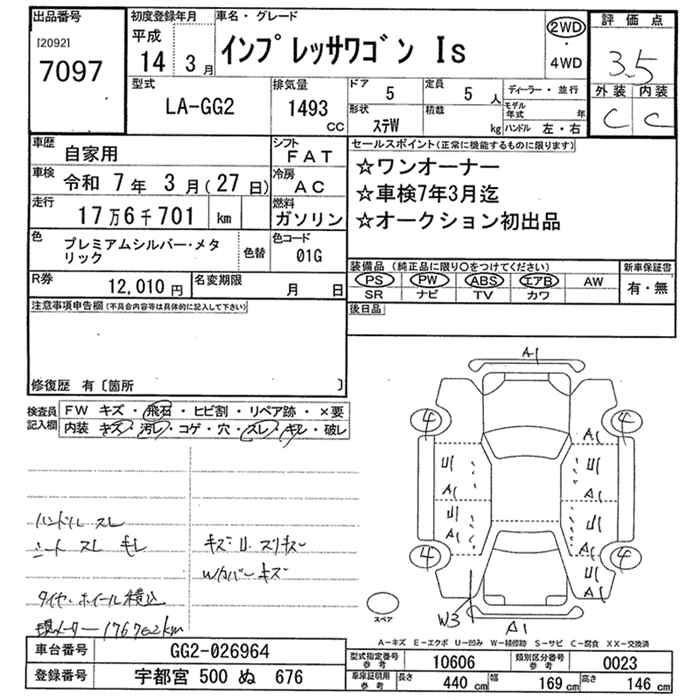 出品番号
[2092]
7097
初度登録年月
平成
14 3月
車名・グレード
インプレッサワゴン Is
2WD
・
4WD
評価点
3.5
外装 内装
C C
型式
LA-GG2
排気量
1493
CC
ドア
5
定員
5 人
形状
ステW
積載
kg
ディーラー・並行
モデル年式 年
ハンドル 左・右
車歴
自家用
シフト
FAT
車検
令和 7年 3月(27日)
冷房
AC
走行
17万6千701 km
燃料
ガソリン
色
プレミアムシルバー・メタリック
色替
色コード
01G
R券
12,010円
名変期限
月 日
セールスポイント(正常に機能するものに限ります)
☆ワンオーナー
☆車検7年3月迄
☆オークション初出品
装備品(純正品に限り○をつけてください)
PS PW ABS エアB AW
SR ナビ TV カワ
新車保証書
有・無
後日品
注意事項申告欄(不具合内容等は具体的に記入して下さい)
修復歴 有〔箇所 〕
検査員記入欄
FW キズ・飛石・ヒビ割・リペア跡・×要
内装 キズ・汚レ・コゲ・穴・スレ・キレ・破レ
ハンドル スレ
シート スレ キレ
キズ U スリキズ
Wカバーキズ
タイヤ・ホイール積込
現メーター176702km
A1
4
4
A1
U
A1
U
A1
A1
U
A1
U
A1
U
A1
4
4
W3
A1
スペア
A-キズ E-エクボ U-凹み W-補修跡 S-サビ C-腐食 XX-交換済
車台番号
GG2-026964
登録番号
宇都宮 500 ぬ 676
型式指定番号
参考
10606
類別区分番号
参考
0023
車庫証明用
参考
長さ 440 cm
幅 169 cm
高さ 146 cm